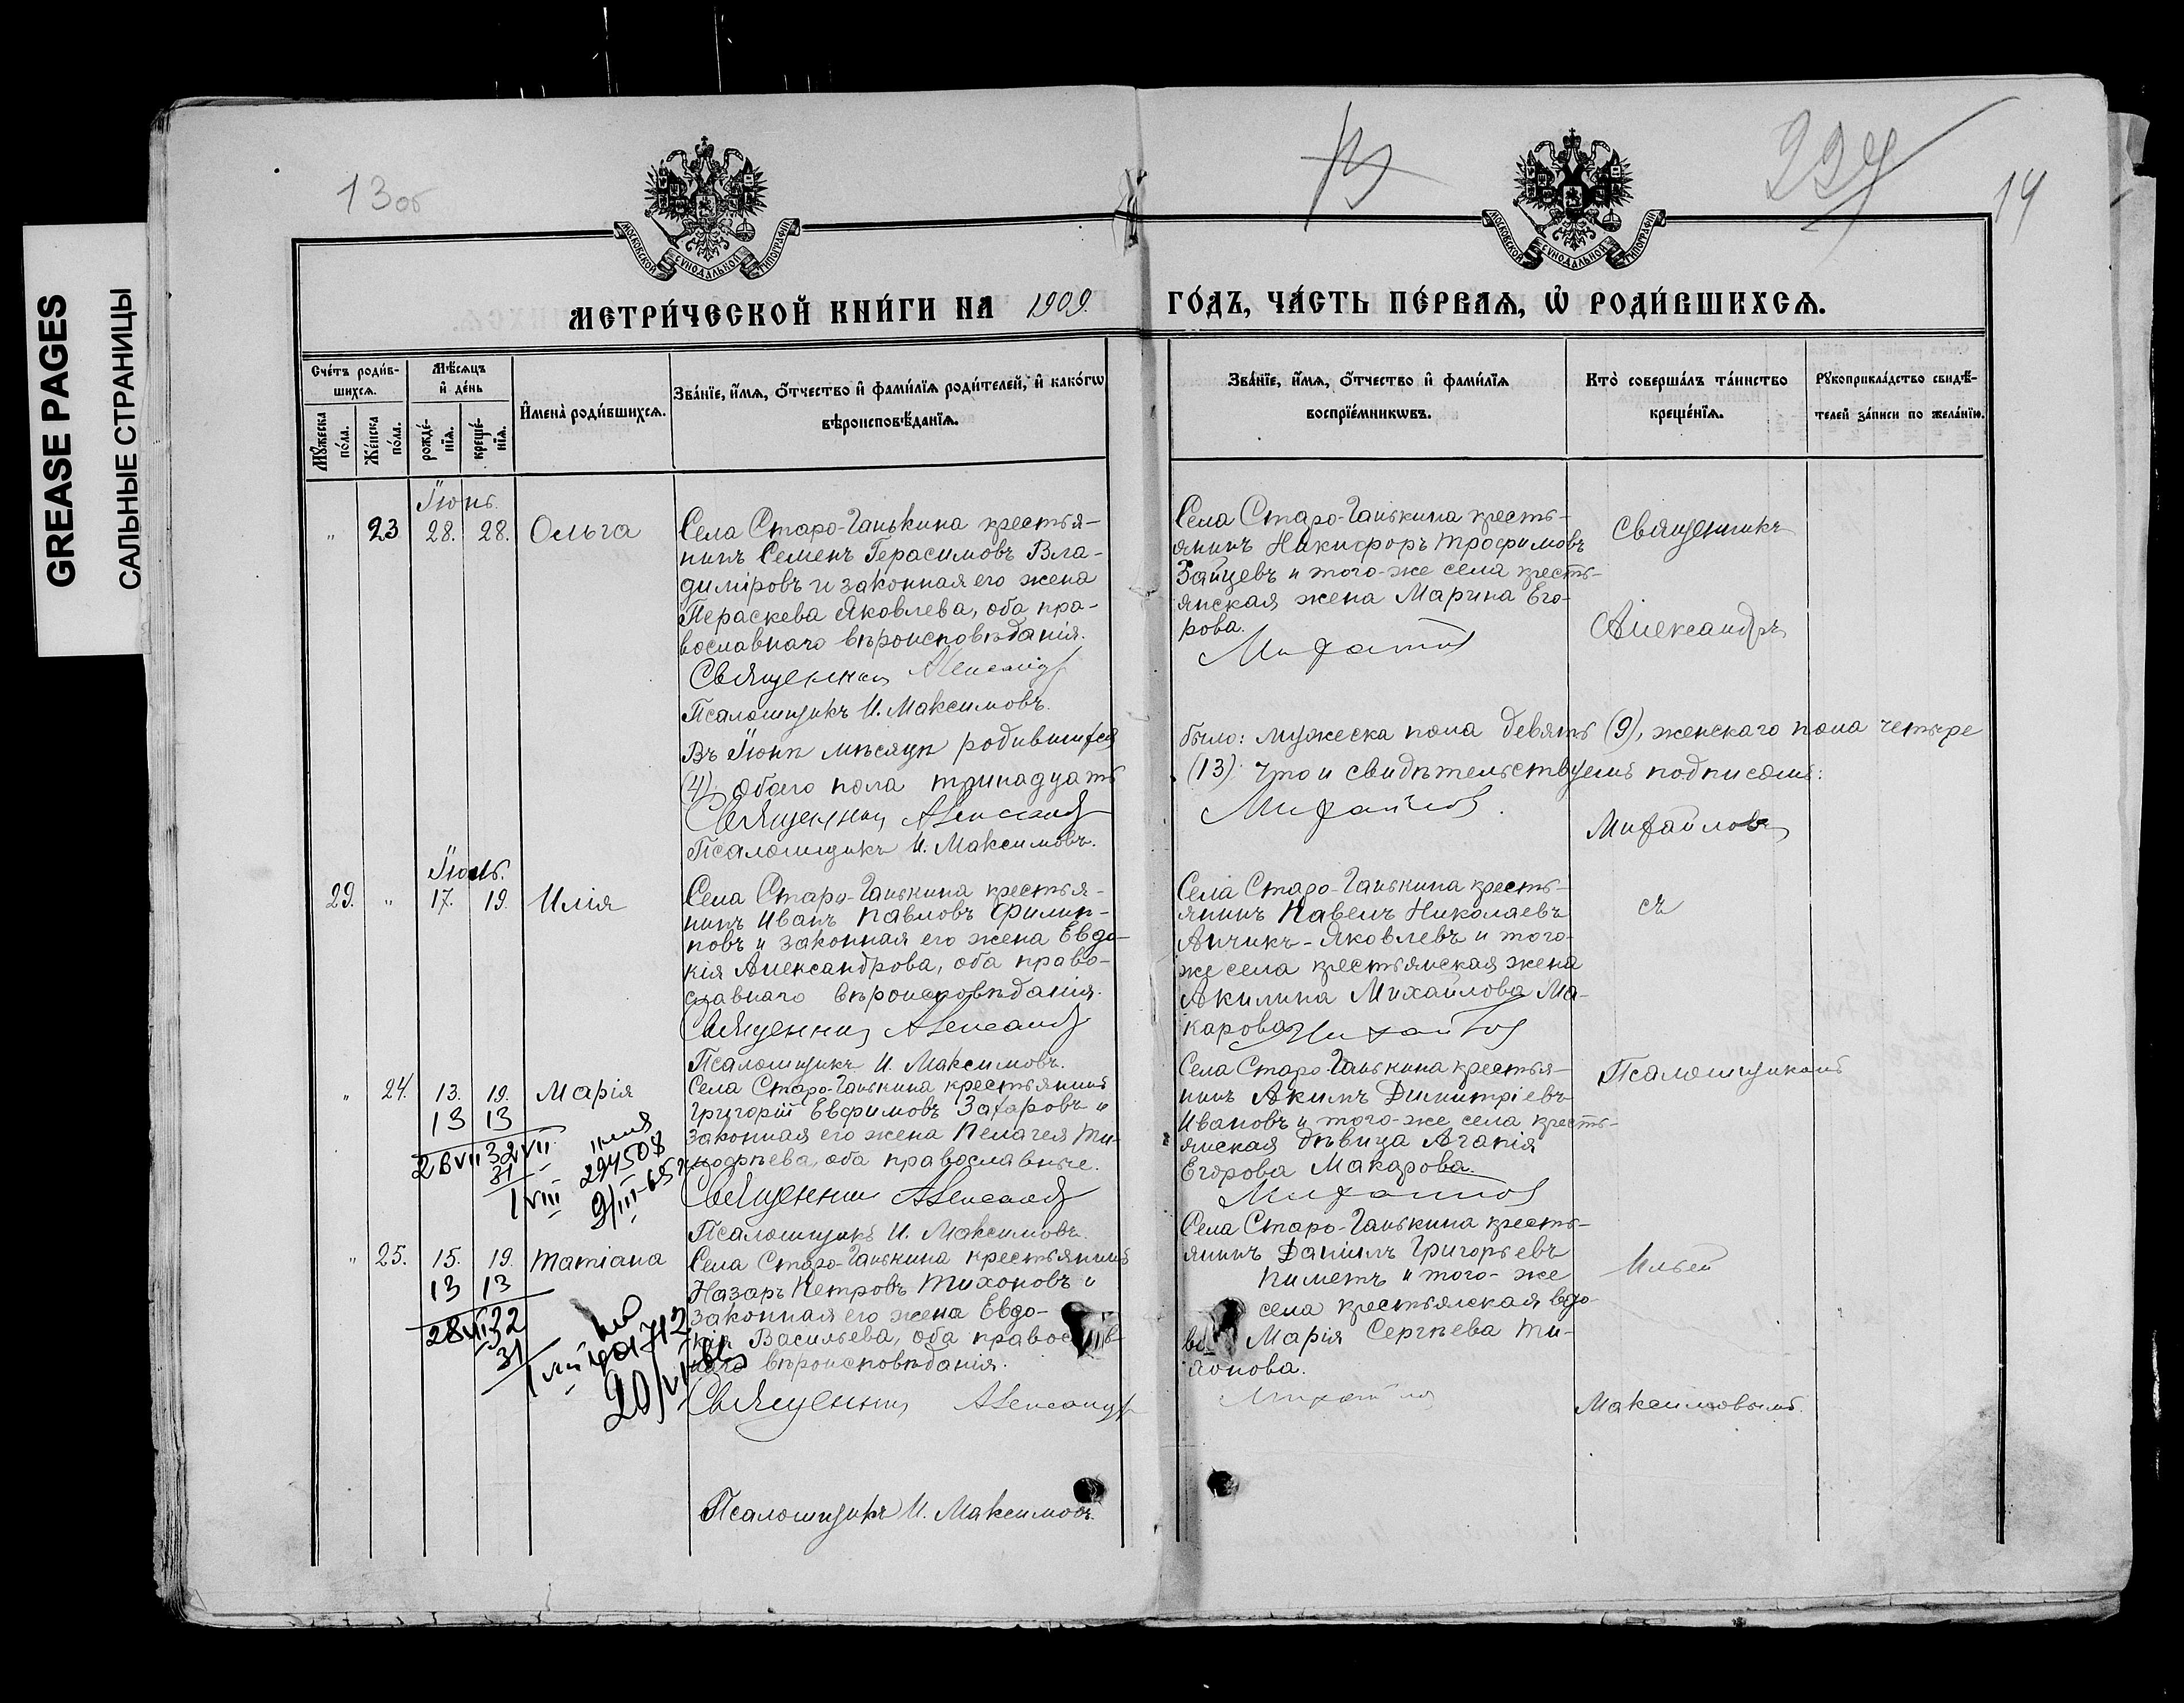 GREASE PAGES
САЛЬНЫЕ СТРАНИЦЫ
13об
224
14
МОСКОВСКОЙ СУНОДАЛЬНОЙ ТИПОГРАФІИ
МОСКОВСКОЙ СУНОДАЛЬНОЙ ТИПОГРАФІИ
МЕТРИ́ЧЕСКОЙ КНИ́ГИ НА 1909. ГО́ДЪ, ЧА́СТЬ ПЕ́РВАѦ, Ѡ҆ РОДИ́ВШИХСѦ.
Сче́тъ роди́в-
шихсѧ.
Мꙋ́жеска по́ла.
Же́нска по́ла.
Мѣ́сѧцъ
и҆ де́нь
рожде́-
нїѧ.
креще́-
нїѧ.
И҆мена̀ роди́вшихсѧ.
Зва́нїе, и҆́мѧ, ѻ҆́тчество и҆ фами́лїѧ роди́телей, и҆ како́гѡ
вѣроисповѣ́данїѧ.
Зва́нїе, и҆́мѧ, ѻ҆́тчество и҆ фами́лїѧ
воспрїе́мникѡвъ.
Кто̀ соверша́лъ та́инство
креще́нїѧ.
Рꙋкоприкла́дство свидѣ́-
телей за́писи по жела́нїю.
Іюнь.
" 23 28. 28. Ольга
Села Старо-Ганькина крестья-
нинъ Семенъ Герасимовъ Вла-
диміровъ и законная его жена
Параскева Яковлева, оба пра-
вославнаго вѣроисповѣданія.
Священникъ Александръ
Псаломщикъ И. Максимовъ.
Села Старо-Ганькина кресть-
янинъ Никифоръ Трофимовъ
Зайцевъ и того-же села кресть-
янская жена Марина Его-
рова.
Михайловъ
Въ Іюнѣ мѣсяцѣ родившихся было: мужеска пола девять (9), женскаго пола четыре
(4), обоего пола тринадцать (13). Что и свидѣтельствуемъ подписомъ:
Священникъ Александръ Михайловъ
Псаломщикъ И. Максимовъ.
Іюль.
29. " 17. 19. Илія
Села Старо-Ганькина крестья-
нинъ Иванъ Павловъ Филип-
повъ и законная его жена Евдо-
кія Александрова, оба право-
славнаго вѣроисповѣданія.
Священникъ Александръ
Псаломщикъ И. Максимовъ.
Села Старо-Ганькина кресть-
янинъ Павелъ Николаевъ
Анчикъ-Яковлевъ и того-
же села крестьянская жена
Акилина Михайлова Ма-
карова.
Михайловъ
" 24. 13. 19. Марія
13 13
26 VII 32 VII
31
1 VIII
294508
9/III-65
Села Старо-Ганькина крестьянинъ
Григорій Евфимовъ Захаровъ и
законная его жена Пелагея Ти-
моѳеева, оба православные.
Священникъ Александръ
Псаломщикъ И. Максимовъ.
Села Старо-Ганькина крестья-
нинъ Акимъ Димитріевъ
Ивановъ и того-же села кресть-
янская дѣвица Агапія
Егорова Макарова.
Михайловъ
" 25. 15. 19. Татіана
13 13
28 VII 32
31
Села Старо-Ганькина крестьянинъ
Назаръ Петровъ Тихоновъ и
законная его жена Евдо-
кія Васильева, оба правос в-
наго вѣроисповѣданія.
Священникъ Александръ
Псаломщикъ И. Максимовъ.
Села Старо-Ганькина кресть-
янинъ Даніилъ Григорьевъ
Пиметъ и того-же
села крестьянская вдо-
ва Марія Сергѣева Ти-
хонова.
Михайловъ
Священникъ
Александръ
Михайловъ
съ
Псаломщикомъ
Ильей
Максимовымъ.